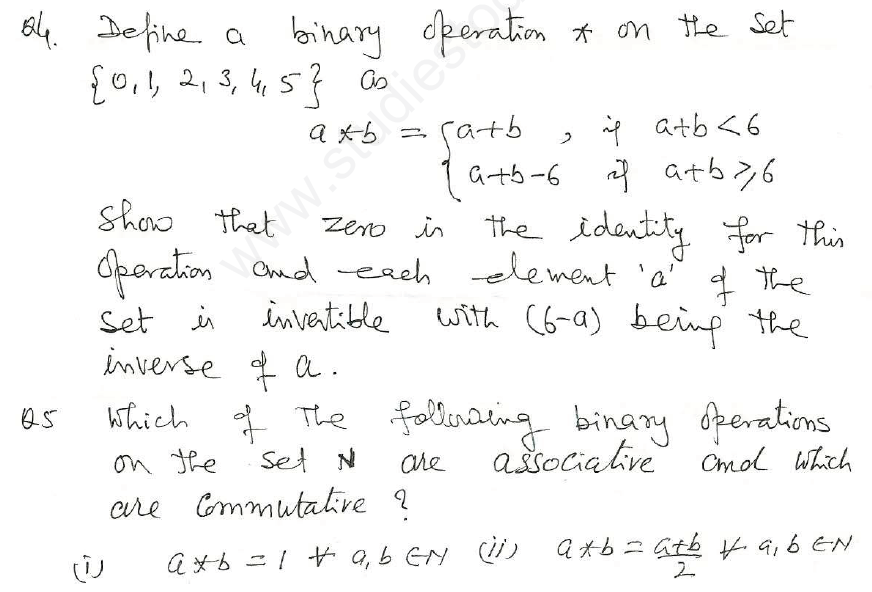 Q4. Define a binary operation * on the set
{0, 1, 2, 3, 4, 5} as
a * b = { a+b , if a+b < 6
{ a+b-6 if a+b ≥ 6
Show that zero is the identity for this
operation and each element 'a' of the
set is invertible with (6-a) being the
inverse of a.
Q5 Which of the following binary operations
on the set N are associative and which
are commutative ?
(i) a * b = 1 ∀ a, b ∈ N (ii) a * b = a+b/2 ∀ a, b ∈ N